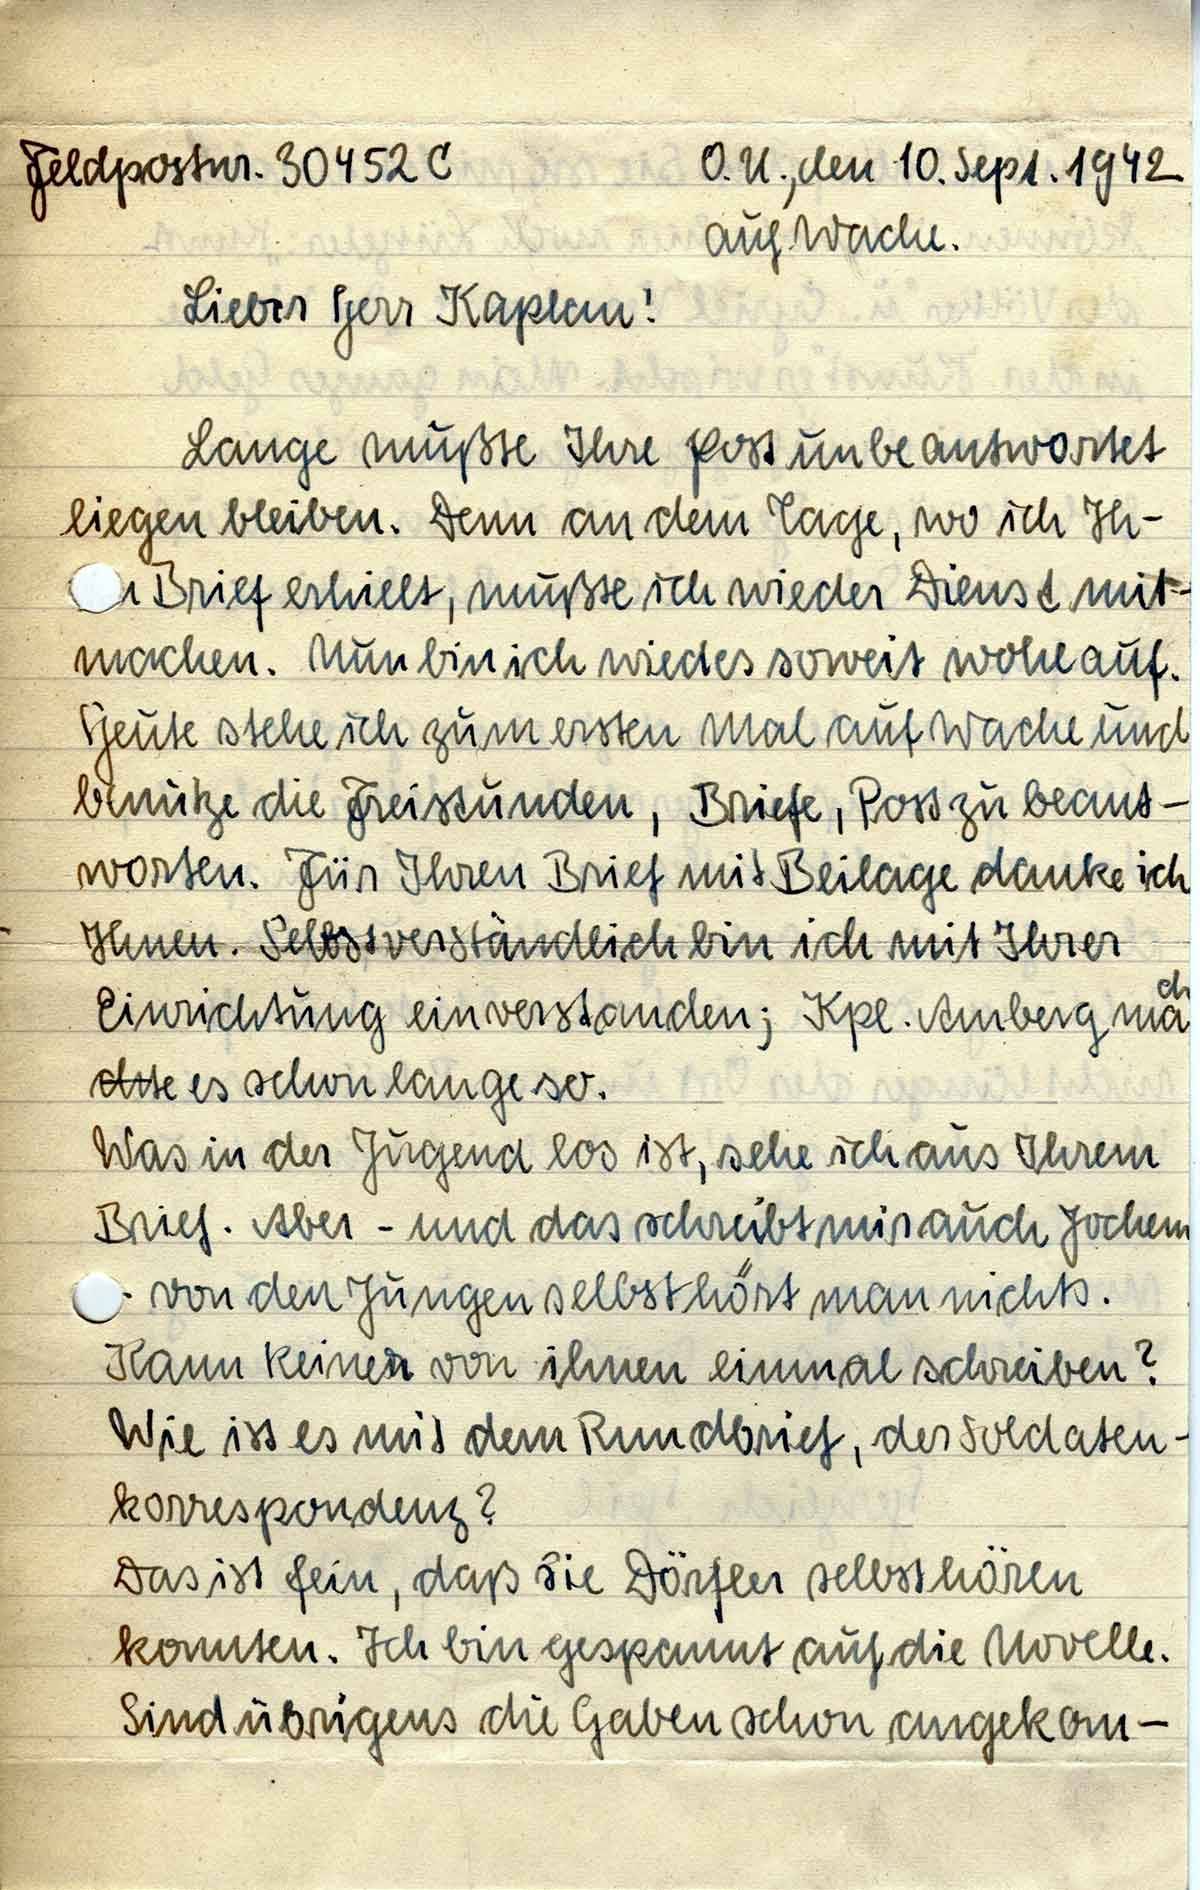 Feldpostnr. 30452 C
O.U., den 10. Sept. 1942
auf Wache.
Lieber Herr Kaplan!
Lange mußte Ihre Post unbeantwortet
liegen bleiben. Denn an dem Tage, wo ich Ih-
n Brief erhielt, mußte ich wieder Dienst mit-
machen. Nun bin ich wieder soweit wohlauf.
Heute stehe ich zum ersten Mal auf Wache und
benutze die Freistunden, Briefe, Post zu beant-
worten. Für Ihren Brief mit Beilage danke ich
Ihnen. Selbstverständlich bin ich mit Ihrer
Einrichtung einverstanden; Kpl. Amberg mach
te es schon lange so.
Was in der Jugend los ist, sehe ich aus Ihrem
Brief. Aber - und das schreibt mir auch Jochem
- von den Jungen selbst hört man nichts.
Kann keiner von ihnen einmal schreiben?
Wie ist es mit dem Rundbrief, der Soldaten-
korrespondenz?
Das ist fein, daß Sie Dörfler selbst hören
konnten. Ich bin gespannt auf die Novelle.
Sind übrigens die Gaben schon angekom-